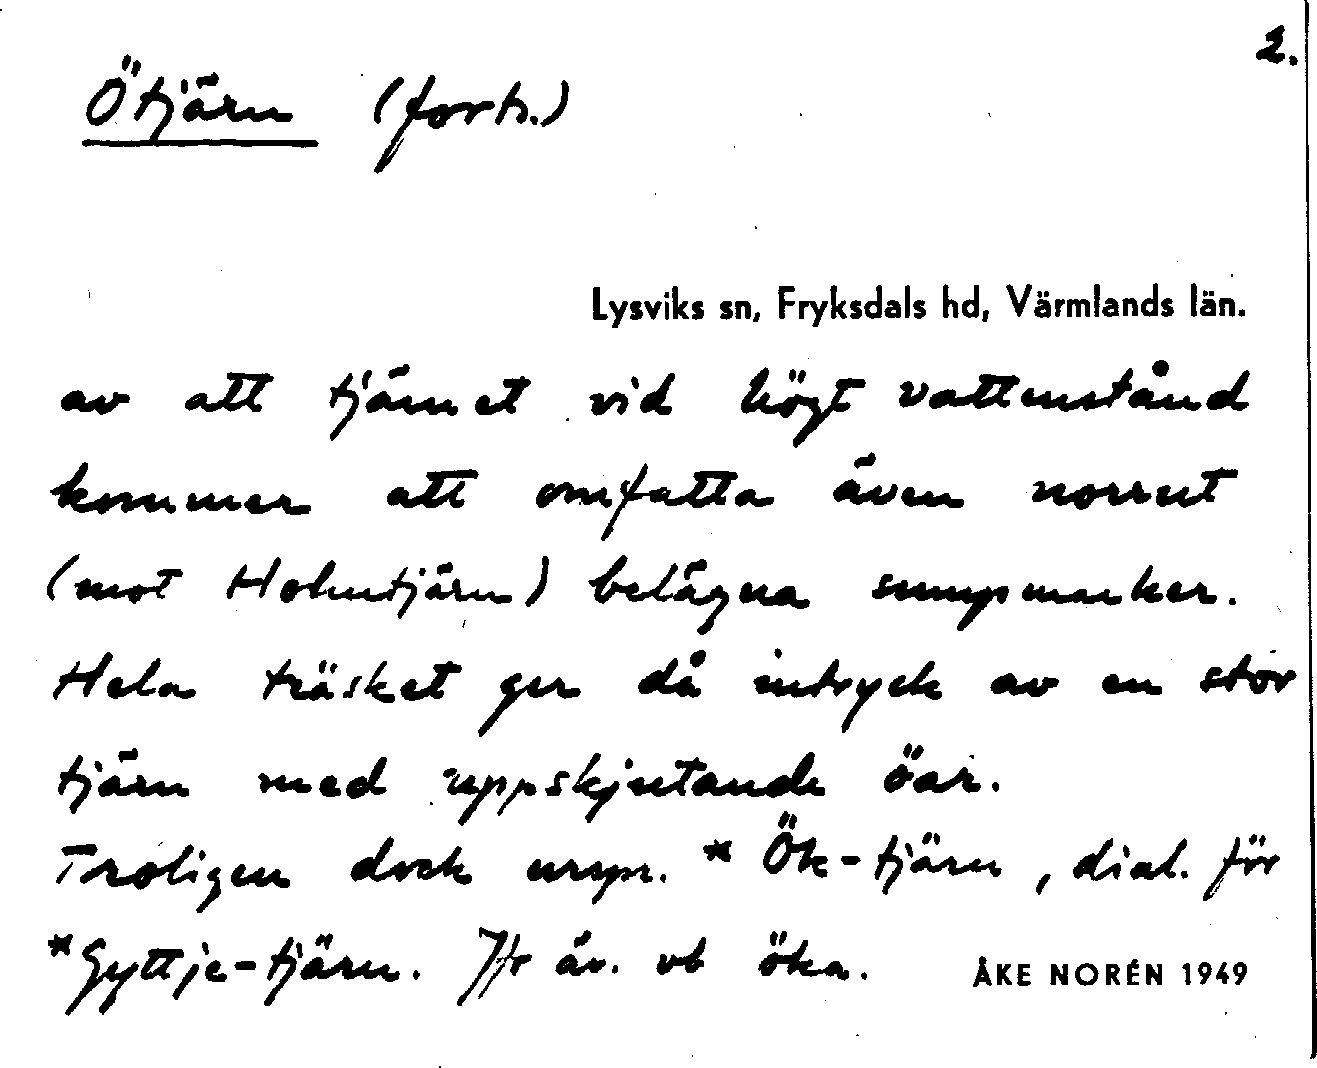 2.
Ötjärn (forts.)
Lysviks sn, Fryksdals hd, Värmlands län.
av att tjärnet vid högt vattenstånd
kommer att omfatta även norrut
(mot Holmtjärn) belägna sumpmarker.
Hela träsket ger då intryck av en stor
tjärn med uppskjutande öar.
Troligen dock urspr. * Ök-tjärn, dial. för
*Gyttje-tjärn. Jfr äv. vb öka.
ÅKE NORÉN 1949